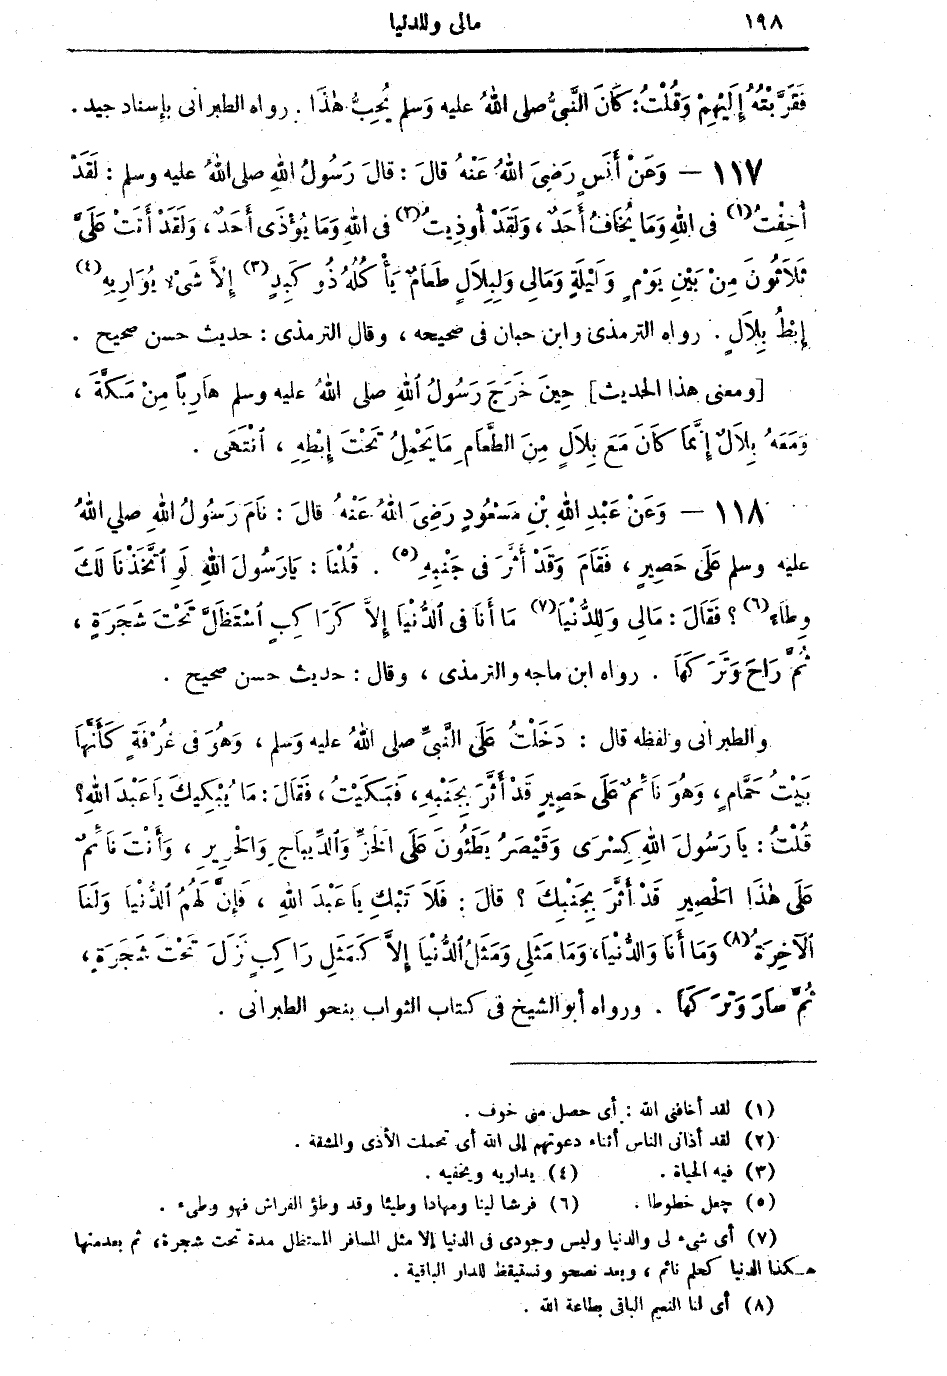 ١٩٨ مالى وللدنيا
فَقَرَّبْتُهُ إِلَيْهِمْ وَقُلْتُ: كَانَ النَّبِىُّ صلى اللهُ عليه وَسلم يُحِبُّ هٰذَا . رواه الطبرانى بإسناد جيد .
١١٧ — وَعَنْ أَنَسٍ رَضِىَ اللهُ عَنْهُ قالَ : قالَ رَسُولُ اللهِ صلى اللهُ عليه وسلم : لَقَدْ
أُخِفْتُ(١) فى اللهِ وَمَا يُخَافُ أَحَدٌ ، وَلَقَدْ أُوذِيتُ(٢) فى اللهِ وَمَا يُؤْذَى أَحَدٌ ، وَلَقَدْ أَتَتْ عَلَىَّ
ثَلَاثُونَ مِنْ بَيْنِ يَوْمٍ وَلَيْلَةٍ وَمَالِى وَلِبِلَالٍ طَعَامٌ يَأْكُلُهُ ذُو كَبِدٍ(٣) إِلاَّ شَىْءٌ يُوَارِيهِ(٤)
إِبْطُ بِلَالٍ . رواه الترمذى وابن حبان فى صحيحه ، وقال الترمذى : حديث حسن صحيح .
[ومعنى هذا الحديث] حِينَ خَرَجَ رَسُولُ اللهِ صلى اللهُ عليه وسلم هَارِباً مِنْ مَكَّةَ ،
وَمَعَهُ بِلَالٌ إِنَّمَا كَانَ مَعَ بِلَالٍ مِنَ الطَّعَامِ مَا يَحْمِلُ تَحْتَ إِبْطِهِ ، انْتَهَى .
١١٨ — وَعَنْ عَبْدِ اللهِ بْنِ مَسْعُودٍ رَضِىَ اللهُ عَنْهُ قالَ : نَامَ رَسُولُ اللهِ صلي اللهُ
عليه وسلم عَلَى حَصِيرٍ ، فَقَامَ وَقَدْ أَثَّرَ فى جَنْبِهِ(٥) . قُلْنَا : يَارَسُولَ اللهِ لَوِ اتَّخَذْنَا لَكَ
وِطَاءً(٦) ؟ فَقَالَ : مَالِى وَلِلدُّنْيَا(٧) مَا أَنَا فى الدُّنْيَا إِلاَّ كَرَاكِبٍ اسْتَظَلَّ تَحْتَ شَجَرَةٍ ،
ثُمَّ رَاحَ وَتَرَكَهَا . رواه ابن ماجه والترمذى ، وقال : حديث حسن صحيح .
والطبرانى ولفظه قال : دَخَلْتُ عَلَى النَّبِىِّ صلى اللهُ عليه وَسلم ، وَهُوَ فى غُرْفَةٍ كَأَنَّهَا
بَيْتُ حَمَّامٍ ، وَهُوَ نَائِمٌ عَلَى حَصِيرٍ قَدْ أَثَّرَ بِجَنْبِهِ ، فَبَكَيْتُ ، فَقَالَ : مَا يُبْكِيكَ يَاعَبْدَ اللهِ ؟
قُلْتُ : يَا رَسُولَ اللهِ كِسْرَى وَقَيْصَرُ يَطَئُونَ عَلَى الْخَزِّ وَالدِّيبَاجِ وَالْحَرِيرِ ، وَأَنْتَ نَائِمٌ
عَلَى هٰذَا الْحَصِيرِ قَدْ أَثَّرَ بِجَنْبِكَ ؟ قالَ : فَلَا تَبْكِ يَاعَبْدَ اللهِ ، فَإِنَّ لَهُمُ الدُّنْيَا وَلَنَا
الْآخِرَةُ(٨) وَمَا أَنَا وَالدُّنْيَا، وَمَا مَثَلِى وَمَثَلُ الدُّنْيَا إِلاَّ كَمَثَلِ رَاكِبٍ نَزَلَ تَحْتَ شَجَرَةٍ ،
ثُمَّ سَارَ وَتَرَكَهَا . ورواه أبو الشيخ فى كتاب الثواب بنحو الطبرانى .
(١) لقد أخافنى الله : أى حصل منى خوف .
(٢) لقد أذانى الناس أثناء دعوتهم إلى الله أى تحملت الأذى والمشقة .
(٣) فيه الحياة . (٤) يداريه ويخفيه .
(٥) جعل خطوطا . (٦) فرشا لينا ومهادا وطيئا وقد وطؤ الفراش فهو وطىء .
(٧) أى شىء لى والدنيا وليس وجودى فى الدنيا إلا مثل المسافر المستظل مدة تحت شجرة، ثم بعدمتها
هكذا الدنيا كحلم نائم ، وبعد نصحو ونستيقظ للدار الباقية .
(٨) أى لنا النعيم الباقى بطاعة الله .